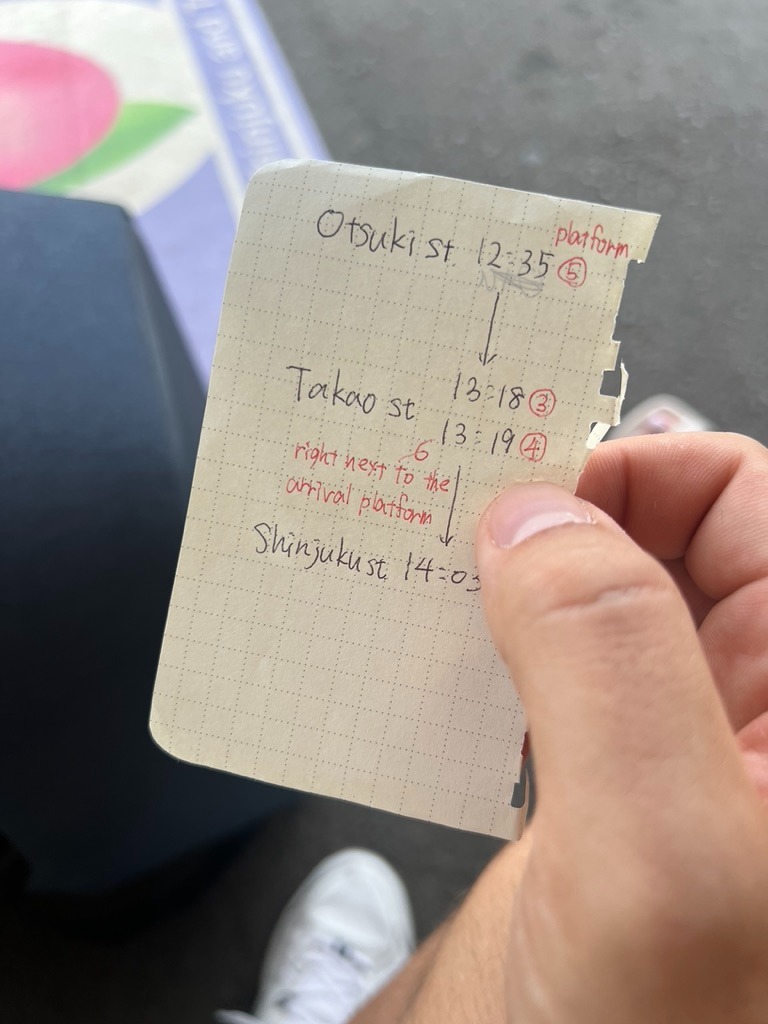 platform
Otsuki st. 12:35 ⑤
13:18 ③
Takao st
13:19 ④
6
right next to the
arrival platform
Shinjuku st. 14:03